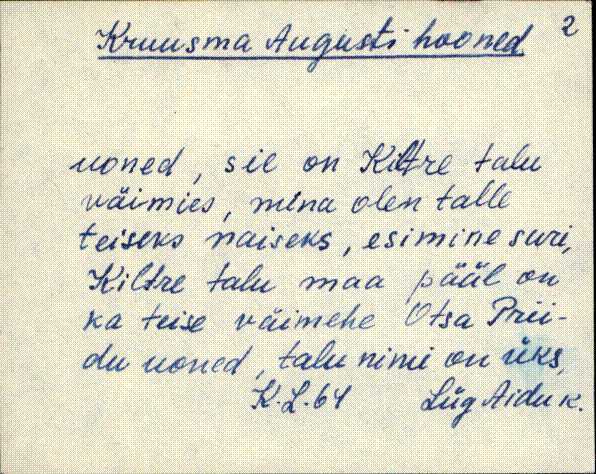 2
Kruusma Augusti hooned
uoned, sie on Kiltre talu
väimies, mina olen talle
teiseks naiseks, esimine suri,
Kiltre talu maa pääl on
ka teise väimehe Otsa Prii-
du uoned, talu nimi on üks,
K.L.64 Lüg Aidu k.